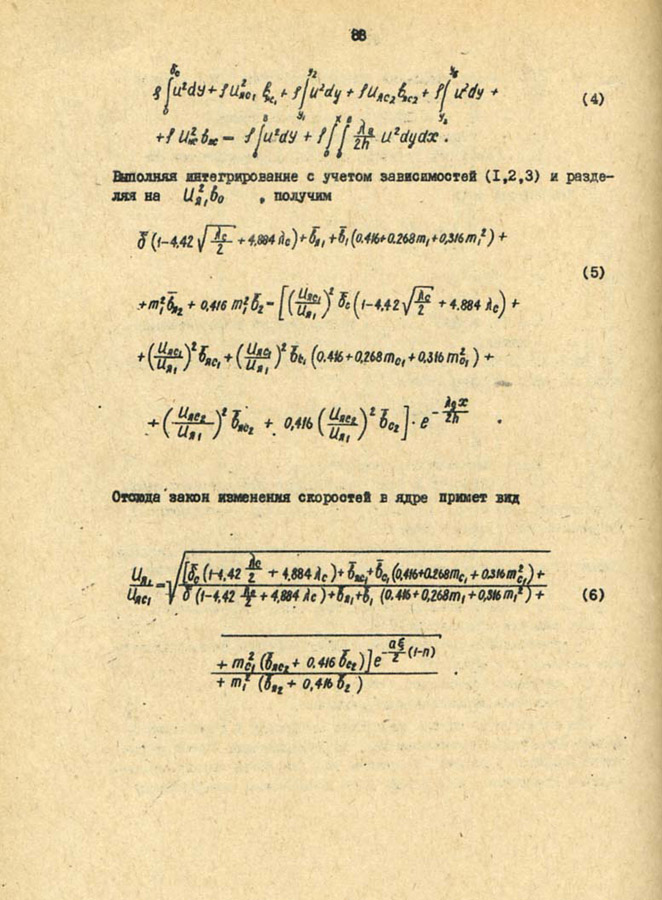 88
ρ∫₀^δc u²dy + ρU²яс₁ bяс₁ + ρ∫y₁^y₂ u²dy + ρUяс₂ bяс₂ + ρ∫ u²dy + (4)
+ρ U² b = ρ∫₀ u²dy + ρ∫₀^x∫₀ λg/2h u²dydx .
Выполняя интегрирование с учетом зависимостей (I,2,3) и разде-
ляя на U²я₁b₀ , получим
δ̄ (1-4,42 √(λc/2) + 4,884 λc) + b̄я₁ + b̄₁ (0.416+0.268m₁+0,316m₁²) +
(5)
+m₁² b̄я₂ + 0,416 m₁² b̄₂ = [(Uяс₁/Uя₁)² δ̄c (1-4,42√(λc/2) + 4.884 λc) +
+(Uяс₁/Uя₁)² b̄яс₁ + (Uяс₁/Uя₁)² b̄c₁ (0.416+0,268mc₁+0,316 m²c₁) +
+(Uяс₂/Uя₁)² b̄яс₂ + 0,416 (Uяс₂/Uя₁)² b̄c₂]·e^(-λgx/2h) .
Отсюда закон изменения скоростей в ядре примет вид
Uя₁/Uяс₁ = √[δ̄c (1-4,42 λc/2 + 4,884 λc) + b̄яс₁ + b̄c₁ (0,416+0.268mc₁ + 0.316m²c₁) +
δ̄ (1-4,42 λc/2 + 4,884 λc) + b̄я₁ + b̄₁ (0.416+0,268m₁+0,316 m₁²) + (6)
+ m²c₁ (b̄яс₂ + 0.416 b̄c₂)] e^(-aξ/2 (1-n))
+ m₁² (b̄я₂ + 0,416 b̄₂) .